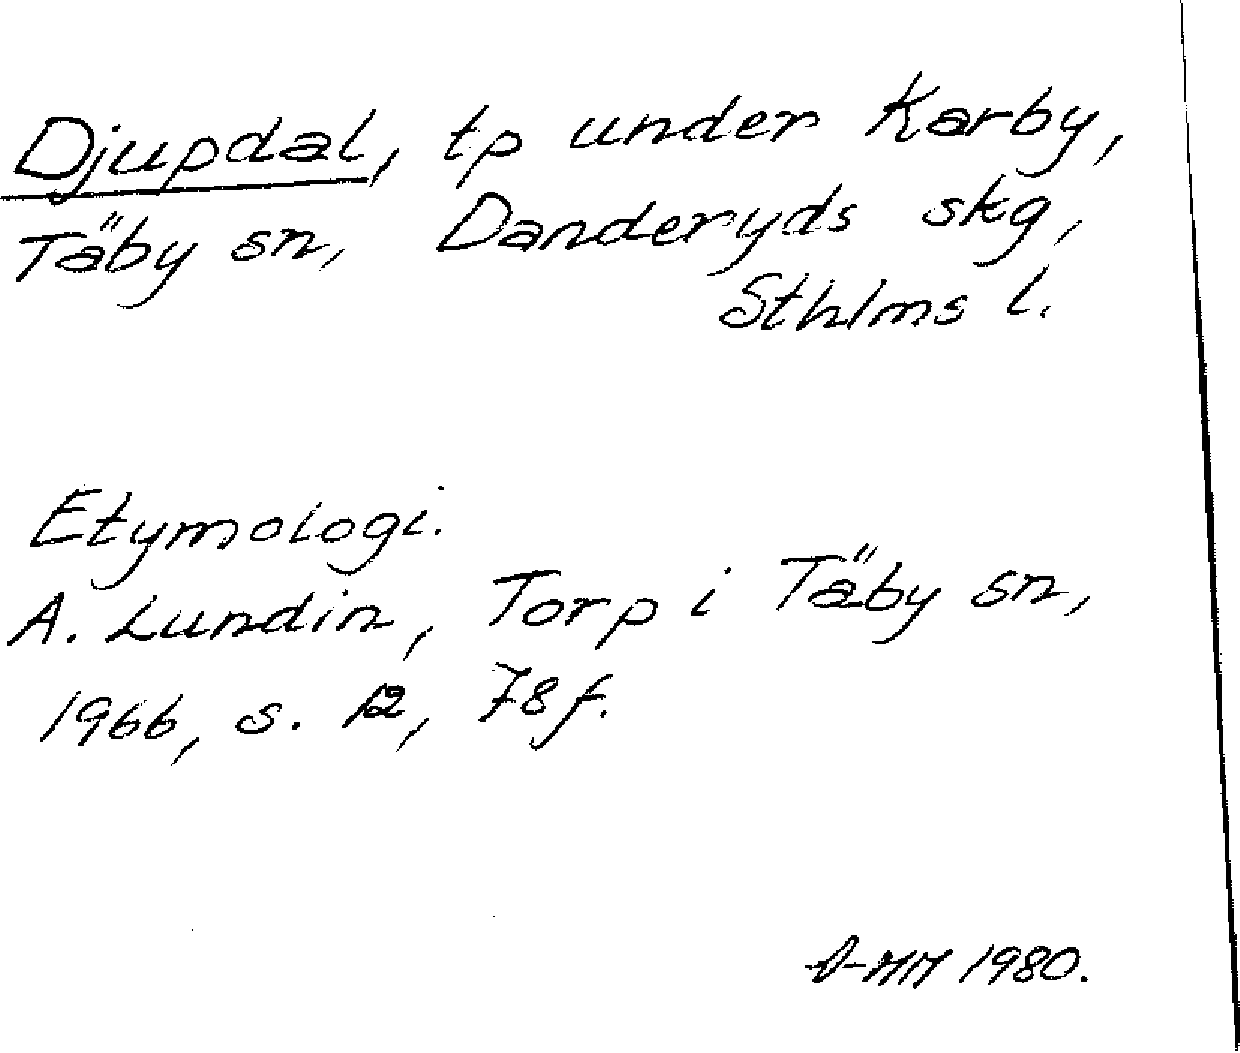 Djupdal, tp under Karby,
Täby sn, Danderyds skg,
Sthlms l.
Etymologi.
A. Lundin, Torp i Täby sn,
1966, s. 12, 78 f.
1980.